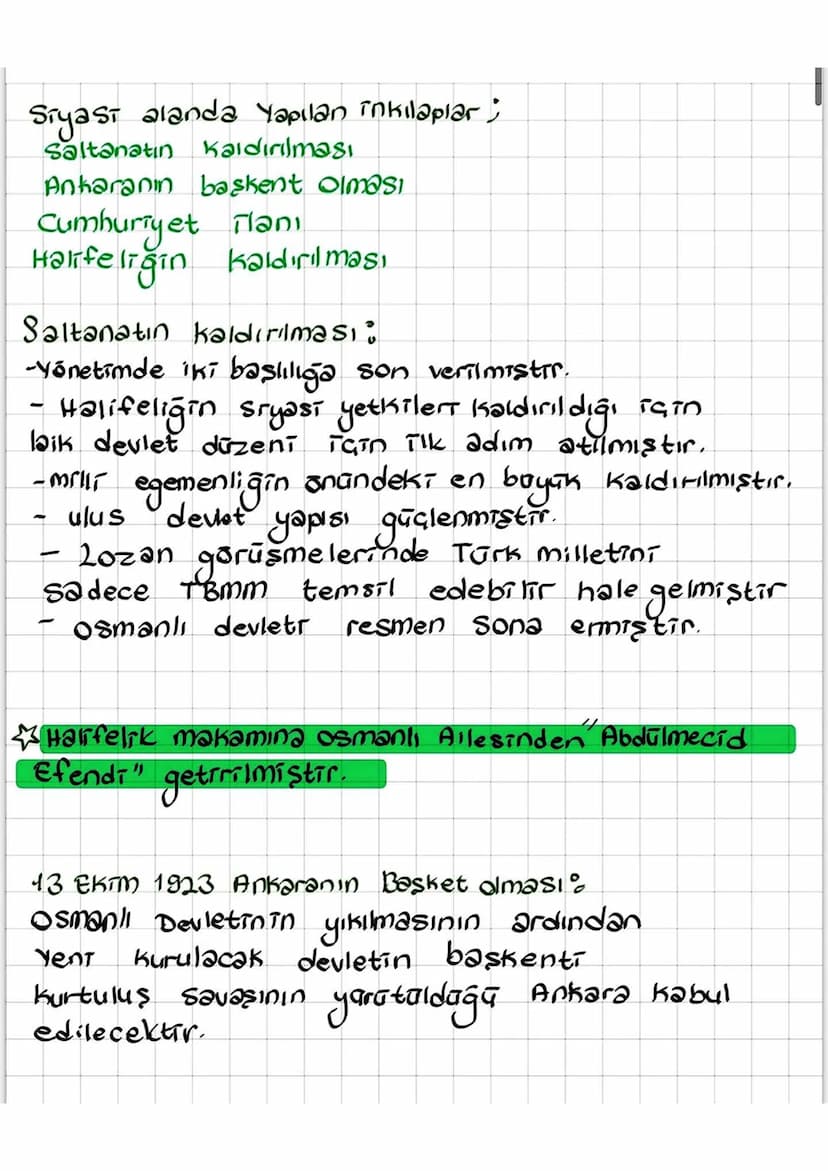 Siyasi alanda Yapılan inkılaplar ;
Saltanatın Kaldırılması
Ankaranın başkent olması
Cumhuriyet ilanı
Halifeliğin kaldırılması
Saltanatın kaldırılması :
-Yönetimde iki başlılığa son verilmiştir.
- Halifeliğin siyasi yetkileri kaldırıldığı için
laik devlet düzeni için ilk adım atılmıştır.
-milli egemenliğin önündeki en büyük kaldırılmıştır.
- ulus devlet yapısı güçlenmiştir.
- Lozan görüşmelerinde Türk milletini
sadece TBMM temsil edebilir hale gelmiştir
- osmanlı devleti resmen sona ermiştir.
☆ Halifelik makamına osmanlı Ailesinden "Abdülmecid
Efendi" getirilmiştir.
13 Ekim 1923 Ankaranın Başket olması :
Osmanlı Devletinin yıkılmasının ardından
Yeni kurulacak devletin başkenti
kurtuluş savaşının yürütüldüğü Ankara kabul
edilecektir.